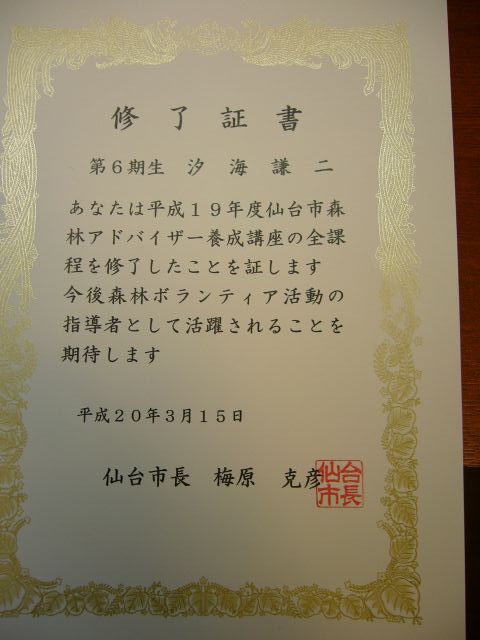 修了証書
第６期生 汐海謙二
あなたは平成１９年度仙台市森
林アドバイザー養成講座の全課
程を修了したことを証します
今後森林ボランティア活動の
指導者として活躍されることを
期待します
平成２０年３月１５日
仙台市長 梅原 克彦
仙台市長